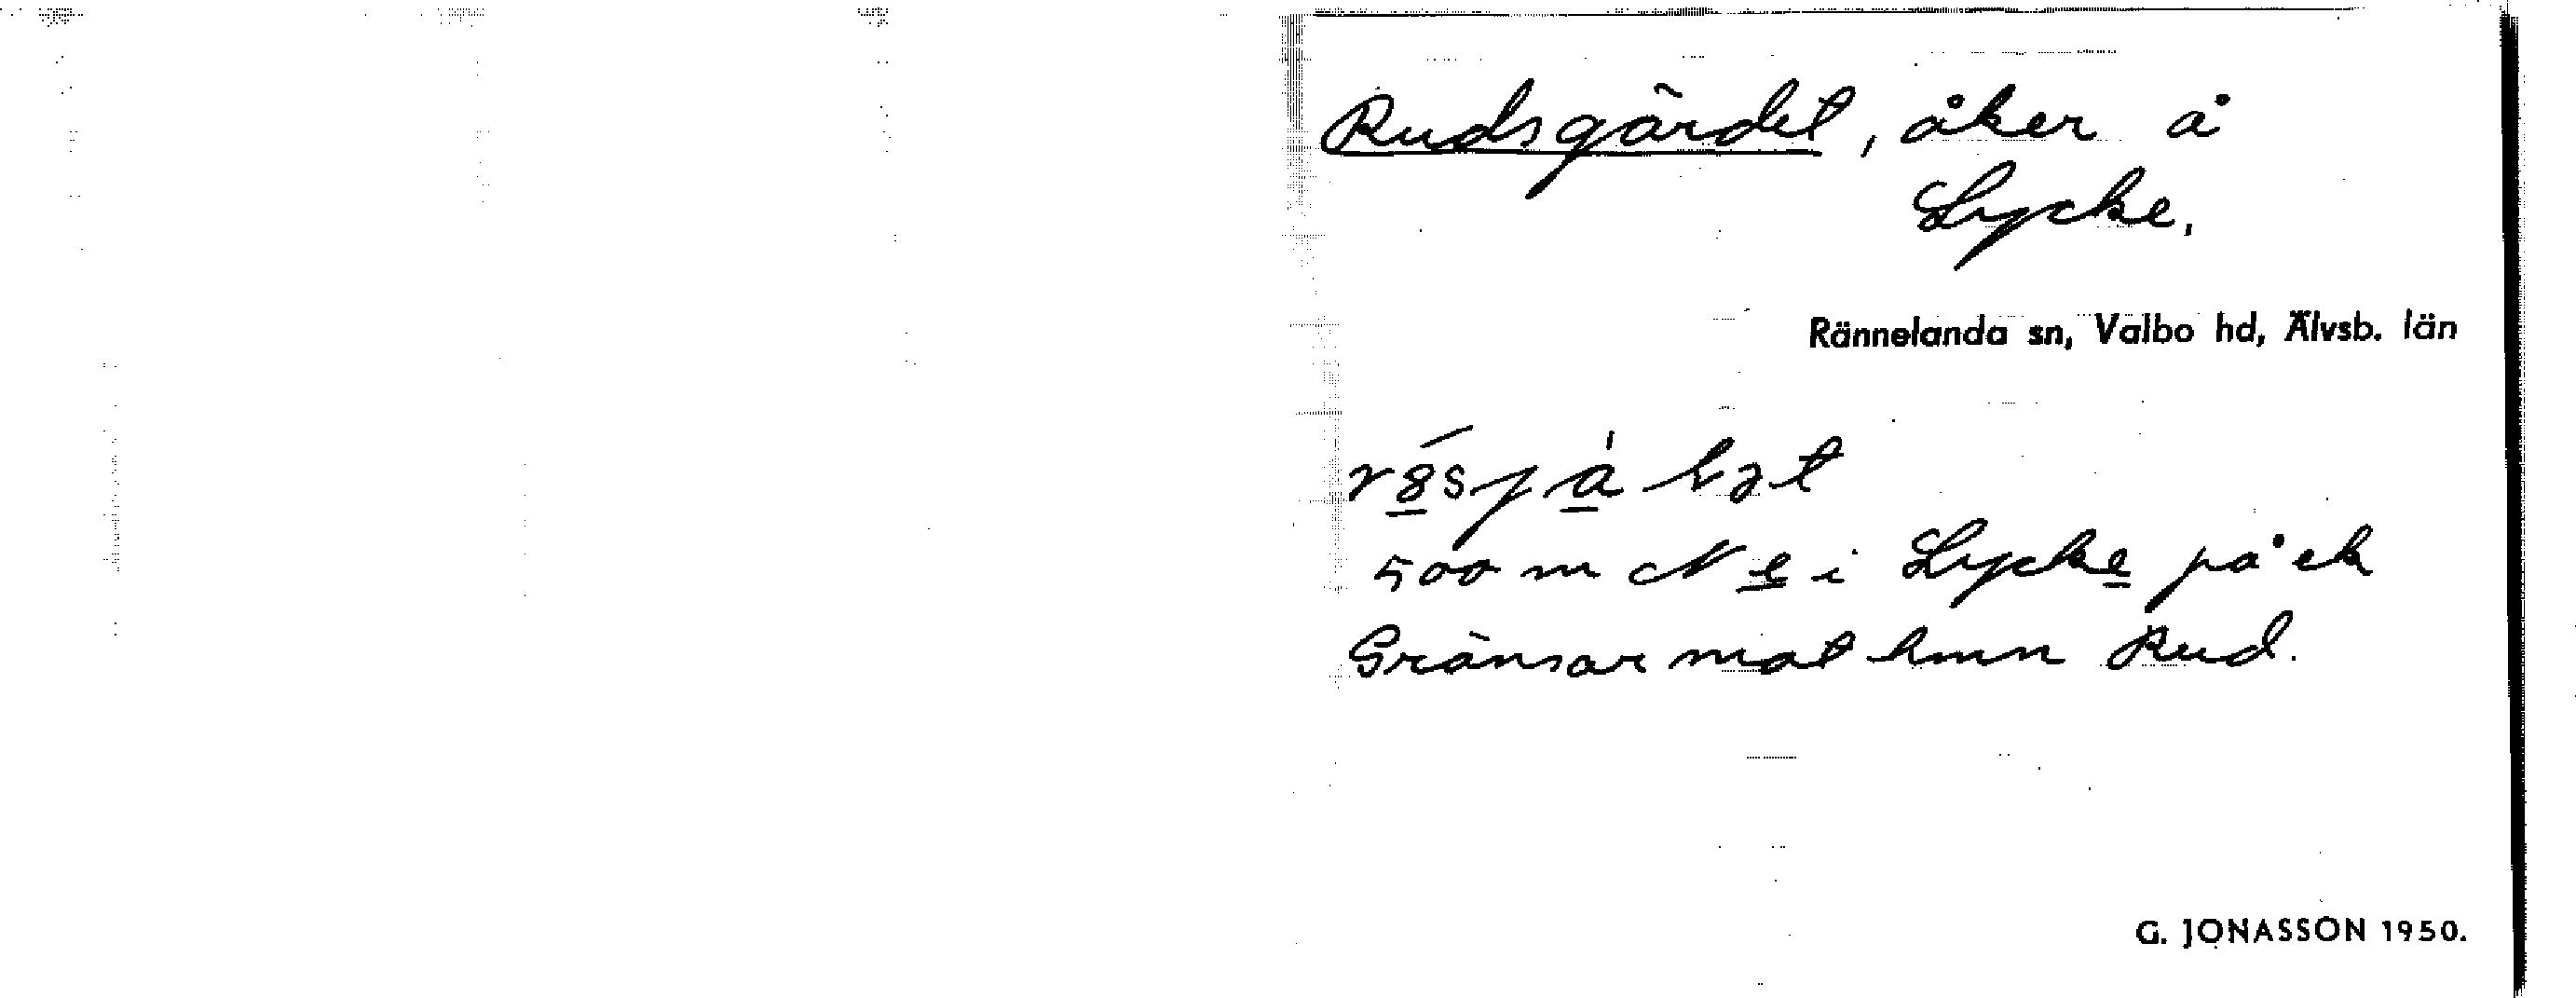 Rudsgärdet, åker å
Lycke.
Rännelanda sn, Valbo hd, Älvsb. län
500 m N e i Lycke på ek
Gränsar mot hmn Rud.
G. JONASSON 1950.